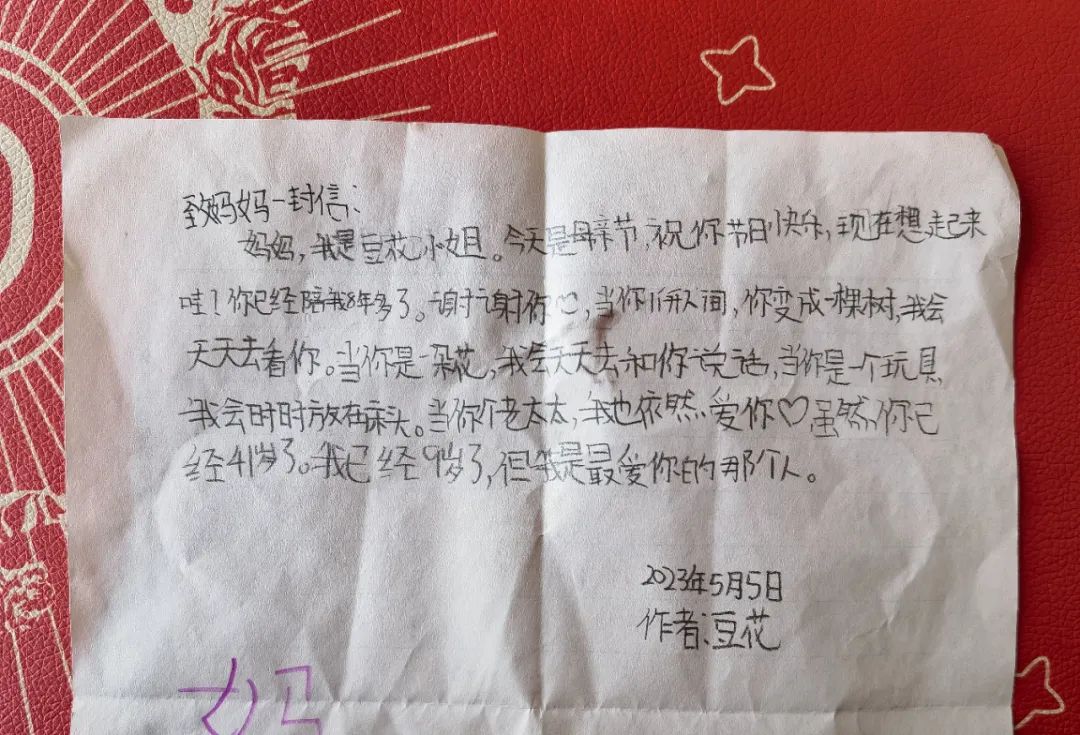 致妈妈一封信:
妈妈,我是豆花小姐。今天是母亲节,祝你节日快乐,现在想起来
哇!你已经陪我8年多了。谢谢你♡,当你离开人间,你变成一棵树,我会
天天去看你。当你是一朵花,我会天天去和你说话,当你是一个玩具
我会时时放在床头。当你个老太太,我也依然爱你♡虽然你已
经41岁了。我已经9岁了,但我是最爱你的那个人。
2023年5月5日
作者:豆花
妈